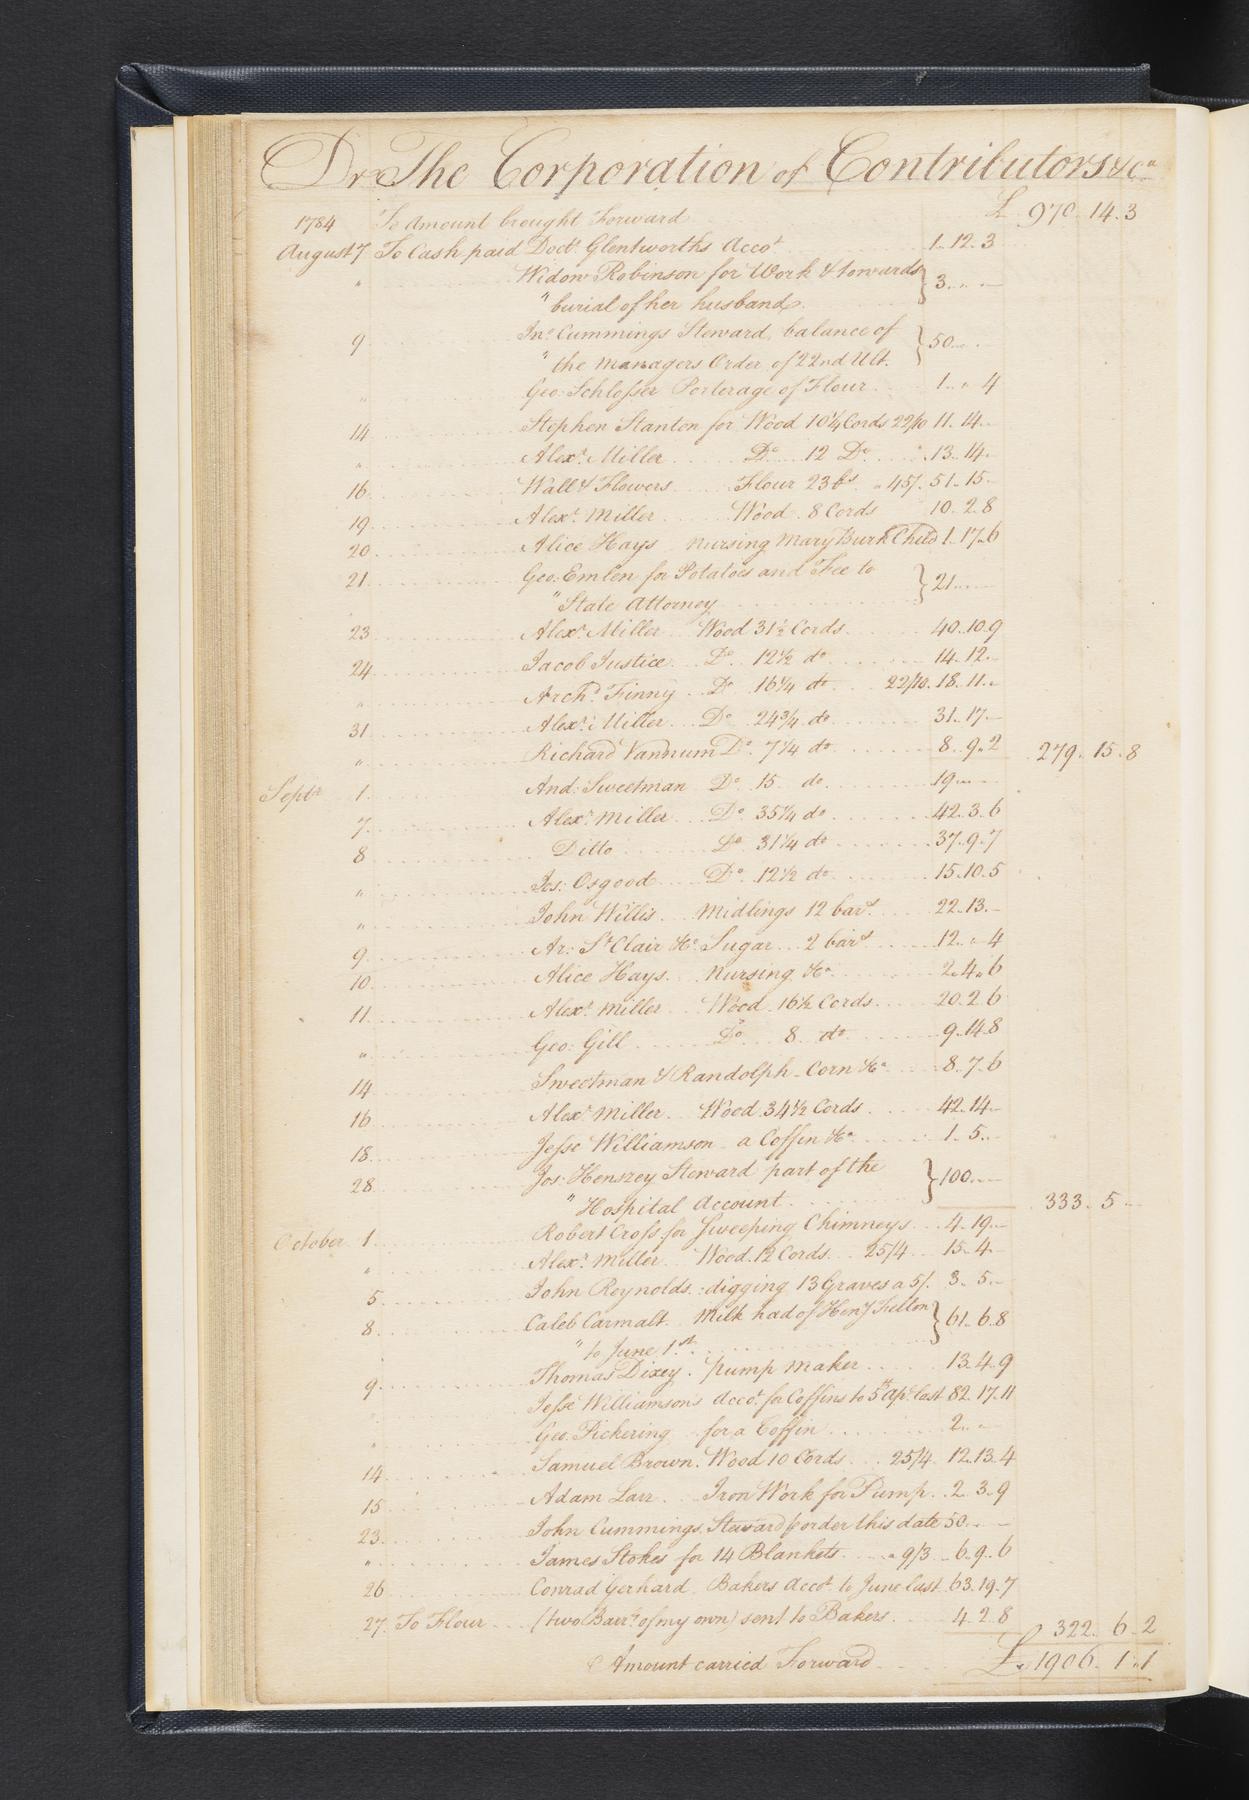 Dr The Corporation of Contributors &ca
1784 To Amount brought Forward £ 970. 14. 3
August 7 To Cash paid Doctr. Glentworths Accot. 1. 12. 3
" Widow Robinson for Work & towards } 3. . . —
" burial of her husband.
9 Jno. Cummings Steward, balance of } 50. . .
" the Managers Order of 22nd Ult.
" Geo: Schlosser Porterage of Flour 1. " 4
14 Stephen Stanton for Wood 10¼ Cords 22/10 11. 14. —
" Alexr. Miller Do. 12 Do. " 13. 14. —
16 Wall & Flowers Flour 23 bs. " 45/. 51. 15. —
19 Alexr. Miller Wood 8 Cords 10. 2. 8
20 Alice Hays nursing Mary Burk Child 1. 17. 6
21 Geo: Emlen for Potatoes and Fee to } 21. . . —
" State Attorney
23 Alexr. Miller Wood 31½ Cords 40. 10. 9
24 Jacob Justice Do. 12½ do. 14. 12. —
" Archd. Finny Do. 16¼ do. 22/10. 18. 11. —
31 Alexr. Miller Do. 24¾ do. 31. 17 —
" Richard Vannum Do. 7¼ do. 8. 9. 2 279. 15. 8
Septr. 1. And: Sweetman Do. 15 do. 19. . . —
7. Alexr. Miller Do. 35¼ do. 42. 3. 6
8 Ditto Do. 31¼ do. 37. 9. 7
" Jos: Osgood Do. 12½ do. 15. 10. 5
" John Willis Midlings 12 bars. 22. 13. —
9. Ar: St. Clair &c. Sugar 2 bars. 12. " 4
10. Alice Hays. Nursing &ca. 2. 4. 6
11. Alexr. Miller Wood 16½ Cords 20. 2. 6
" Geo: Gill Do. 8 do. 9. 14. 8
14 Sweetman & Randolph Corn &ca. 8. 7. 6
16 Alexr. Miller Wood 34½ Cords 42. 14. —
18. Jesse Williamson a Coffin &ca. 1. 5. —
28. Jos: Henszey Steward part of the } 100. . —
" Hospital Account 333. 5 —
October 1. Robert Cross for Sweeping Chimneys 4. 19. —
" Alexr. Miller Wood. 12 Cords 25/4 15. 4. —
5. John Reynolds. digging 13 Graves a 5/. 3. 5. —
8. Caleb Carmalt. Milk had of Heny } 61. 6. 8
" to June 1st.
9. Thomas Dixey. pump maker 13. 4. 9
" Jesse Williamsons Accot. for Coffins to 5th Apl. last 82. 17. 11
" Geo. Pickering for a Coffin 2. . —
14. Samuel Brown. Wood 10 Cords 25/4 12. 13. 4
15. Adam Larr Iron Work for Pump 2. 3. 9
23. John Cummings. Steward order this date 50. . —
" James Stokes for 14 Blankets " 9/3 6. 9. 6
26 Conrad Gerhard Bakers Accot. to June last 63. 19. 7
27. To Flour (two Barrls. of my own) sent to Bakers 4. 2. 8 322. 6. 2
Amount carried Forward £. 1906. 1. 1